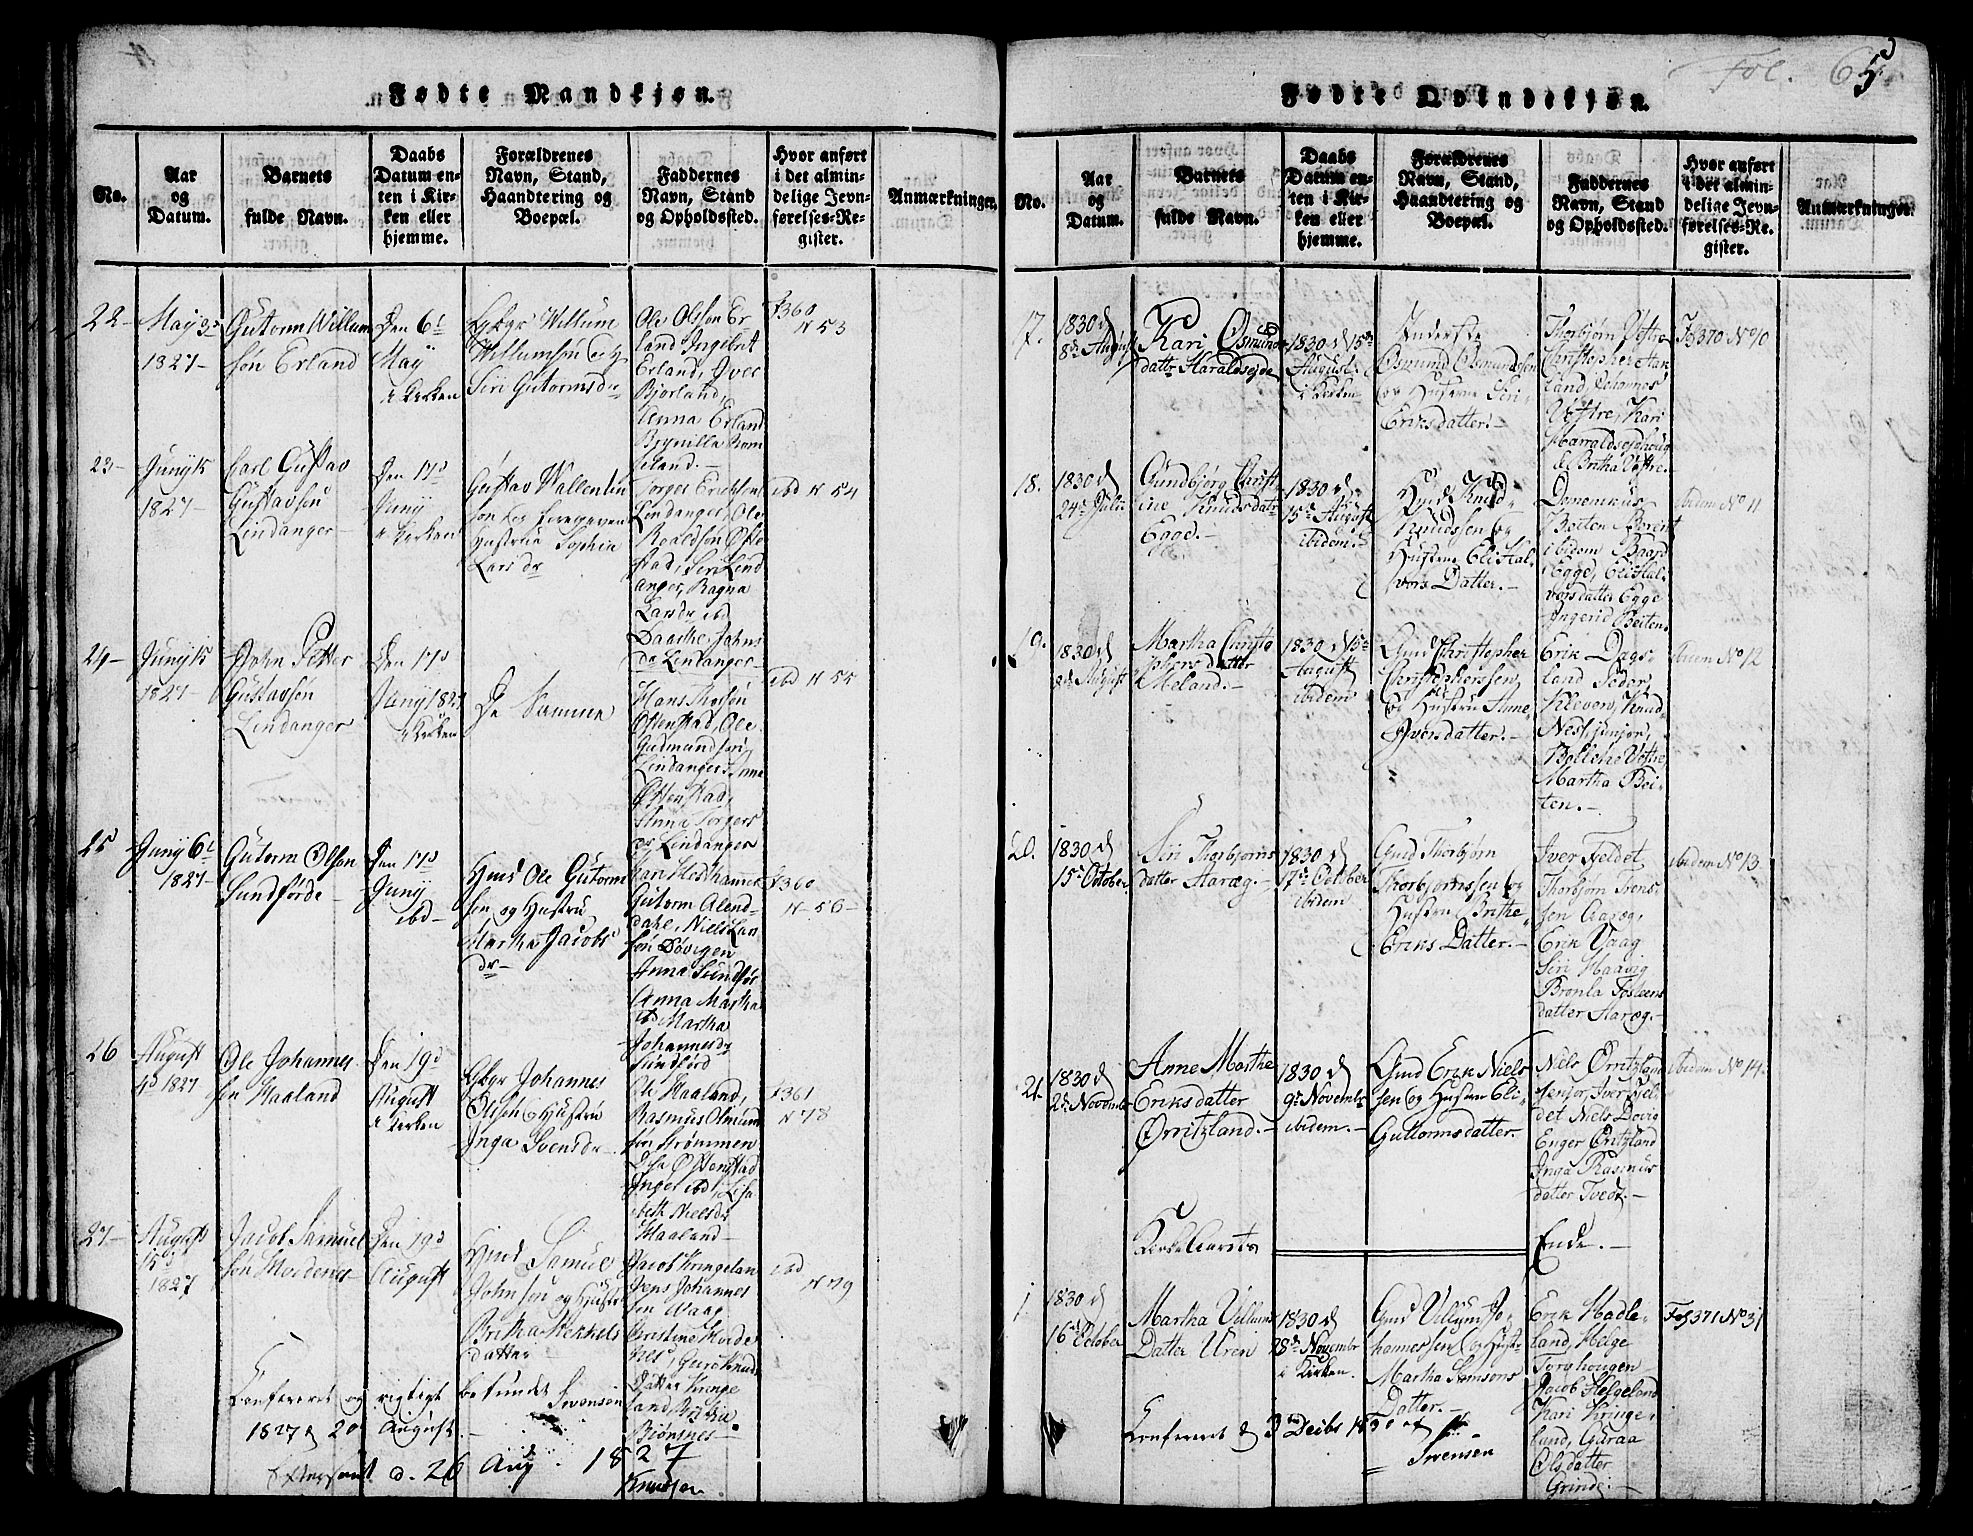 Fol. 65
Fødte Mandkjøn.
No.
Aar
og
Datum.
Barnets
fulde Navn.
Daabs
Datum en-
ten i Kir-
ken eller
hjemme.
Forældrenes
Navn, Stand,
Haandtering og
Boepæl.
Faddernes
Navn, Stand
og Opholdssted.
Hvor anført
i det almin-
delige Jevn-
førelses-Re-
gister.
Anmærkninger.
22-
May 3d
1827-
Gutorm Willum
søn Erland
Den 6t
May
i Kirken
Willum
Willumsen og
Siri Gutormsdr
Ole Olsøn Er-
land Ingebret
Erland, Iver
Bjorland,
Anna Erland
f360
N 53
23-
Juny 15
1827-
Carl Gustav
Gustavsen
Lindanger
Den 17d
Juny
i Kirken
Gustav Wallentin
sen og
Hustrue Sophia
Lars dr
Torger Ericksen
Lindanger, Ole
Roaldsøn Øste
stad, Siri Lind
anger, Ragna
Larsdr ibd
Daarthe Johns
dr Lindanger
ibd N 54
24-
Juny 15
1827-
John Petter
Gustavsøn
Lindanger
Den 17d
Juny 1827
i Kirken
De Samme
Østenstad, Ole
Gudmundsen
Lindanger
Østenstad,
Anna Torgers
dr Lindanger
ibd N 55
25
Juny 6t
1827-
Gutorm Olsen
Sundførde
Den 17d
Juny
ibd-
Huusmd Ole Gutorm
sen og Hustru
Martha Jacobs
dr-
Gutorm Alend-
dahl, Niels Lar
søn Døvigen
Anna Sundfør
Anna Martha
ibd Martha
Johannesdr
Sundførd
f360
N-56-
26
August
4d 1827
Ole Johannes
søn Haaland
Den 19d
August
i Kirken
Johannes
Olsen og Hustru
Inga Svensdr
Ole Haaland,
Rasmus Osmund
søn Strømmen
Østenstad
Inger ibd, Lisa
beth Nielsdr
Haaland-
f361
N 78
27-
August
15d
1827
Jacob Samuel
søn Hordenes
Den 19d
August
Huusmd Samuel
John sen og Hustr
Britha Mekkels
datter
Jacob Kringeland
Jens Johannes
sen Waag
Christine Horde
nes, Guro Knuds
Datter Kringe
land, Britha
Bjønnes-
ibd
N 79
Confereret og rigtigt befundet Svensen
1827 d 20 August.
Efterseet d. 26 Aug 1827
Knudsen
Fødte Qvindekjøn.
No.
Aar
og
Datum.
Barnets
fulde Navn.
Daabs
Datum en-
ten i Kir-
ken eller
hjemme.
Forældrenes
Navn, Stand,
Haandtering og
Boepæl.
Faddernes
Navn, Stand
og Opholdssted.
Hvor anført
i det almin-
delige Jevn-
førelses-Re-
gister.
Anmærkninger.
17.
1830 d
8de August
Kari Osmunds
datter Haraldseide
1830 d 15de
August
i Kirken
Inderste
Osmund Osmundsen
og Hustrue Siri
Eriksdatter.-
Thorbjørn Østre
Christopher Aar
land, Johannes
Vestre, Kari
Harraldsejdhoug
& Britha Vestre.
Fo 370 No 10
18.
1830 d
24de Julii
Gundbjørg Christ-
ine Knudsdatr
Egge.-
1830 d
15de August
ibidem.
Gmd Knud
Knudssen og
Hustrue Eli Hal-
vors Datter.-
Beiten, Berent
ibidem Baard
Egge, Eli Hal-
vorsdatter Egge
Ingerid Beiten.
ibidem No 11
19.
1830 d
2de August
Martha Christo
phersdatter
Meland.-
1830 d 15de
August
ibidem
Gmd Christopher
Christophersen,
og Hustrue Anne
Iversdatter.-
Erik Dags-
land, Peder
Kleven, Knud
Nes junior,
Martha Bei-
ten.-
ibidem No 12
20.
1830 d
15de October
Siri Thorbjørns
datter Aaræg.-
1830 d
17de October
ibidem
Gmd Thorbjørn
Thorbjørnssen og
Hustrue Brithe
Eriks Datter.-
Iver Fieldet,
Thorbjørn Trens-
sen Aaræg,
Erik Vaag
Siri Haavig
Bronla Tosteens
datter Aaræg.-
ibidem No 13
21.
1830 d
2de Novembr
Anne Marthe
Eriksdatter
Ørritzland.-
1830 d
9de Novembr
ibidem.-
Gmd Erik Niels
sen og Hustrue Eli
Guttormsdatter.
Niels Ørritzland
senior, Iver Fjel-
det Niels Døvig
Enger Øritzland
Inga Rasmus
datter Tvedt.-
ibidem No 14
Kirke Aarets
Ende.-
1
1830 d
16de October
Martha Villums
Datter Uren
1830 d
28de Novembr
i Kirken.
Gmd Villum Jo-
hannessen og Hust-
Martha Samsons
Datter.-
Erik Hadle-
land, Helge
Torghougen
Jacob Helgeland
Kari Kringe-
land, Guraa
Olsdatter
Grinde.-
Fol 371 No 31
Confereret d 3de Decbr 1830 af
Svensen